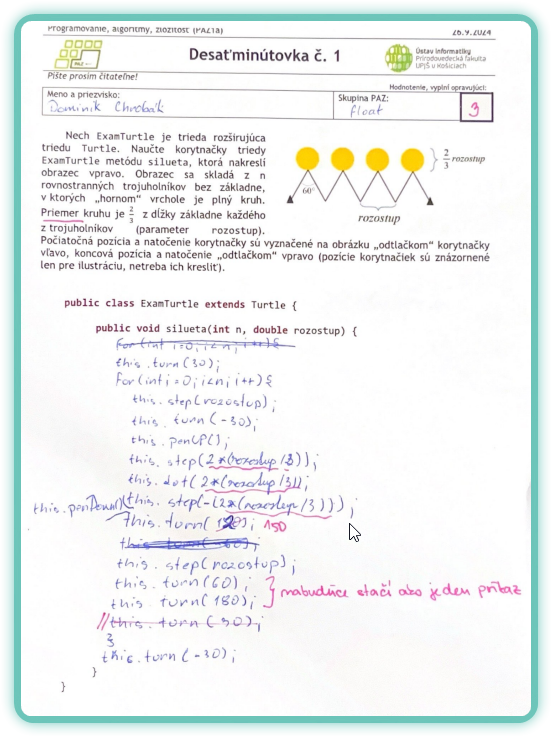 Programovanie, algoritmy, zložitosť (PAZ1a)
26.9.2024
Desaťminútovka č. 1
Ústav informatiky
Prírodovedecká fakulta
UPJŠ v Košiciach
Píšte prosím čitateľne!
Hodnotenie, vyplní opravujúci:
Meno a priezvisko:
Dominik Chrobák
Skupina PAZ:
float
3
Nech ExamTurtle je trieda rozširujúca
triedu Turtle. Naučte korytnačky triedy
ExamTurtle metódu silueta, ktorá nakreslí
obrazec vpravo. Obrazec sa skladá z n
rovnostranných trojuholníkov bez základne,
v ktorých „hornom“ vrchole je plný kruh.
Priemer kruhu je 2/3 z dĺžky základne každého
z trojuholníkov (parameter rozostup).
2/3 rozostup
60°
rozostup
Počiatočná pozícia a natočenie korytnačky sú vyznačené na obrázku „odtlačkom“ korytnačky
vľavo, koncová pozícia a natočenie „odtlačkom“ vpravo (pozície korytnačiek sú znázornené
len pre ilustráciu, netreba ich kresliť).
public class ExamTurtle extends Turtle {
public void silueta(int n, double rozostup) {
for (int i=0; i<n; i++) {
this.turn(30);
for(int i=0; i<n; i++){
this.step(rozostup);
this.turn(-30);
this.penUP();
this.step(2*(rozostup/3));
this.dot(2*(rozostup/3));
this.penDown();
this.step(-(2*(rozostup/3)));
this.turn(120); 150
this.step(rozostup);
this.turn(60);
this.turn(180);
nabudúce stačí ako jeden príkaz
//this.turn(90);
}
this.turn(-30);
}
}